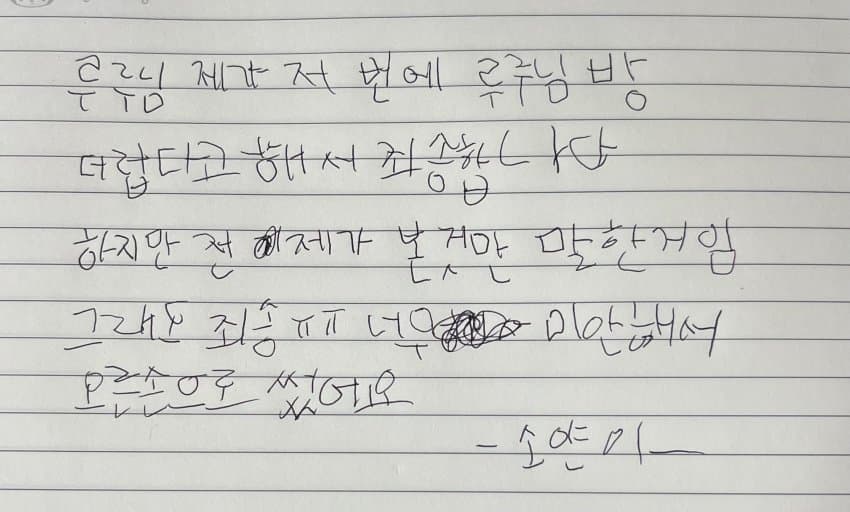 루루님 제가 저 번에 루루님 방
더럽다고 해서 죄송합니다
하지만 전 제가 본것만 말한거임
그래도 죄송 ㅠㅠ 너무 미안해서
오른손으로 썼어요
- 소얀이 -